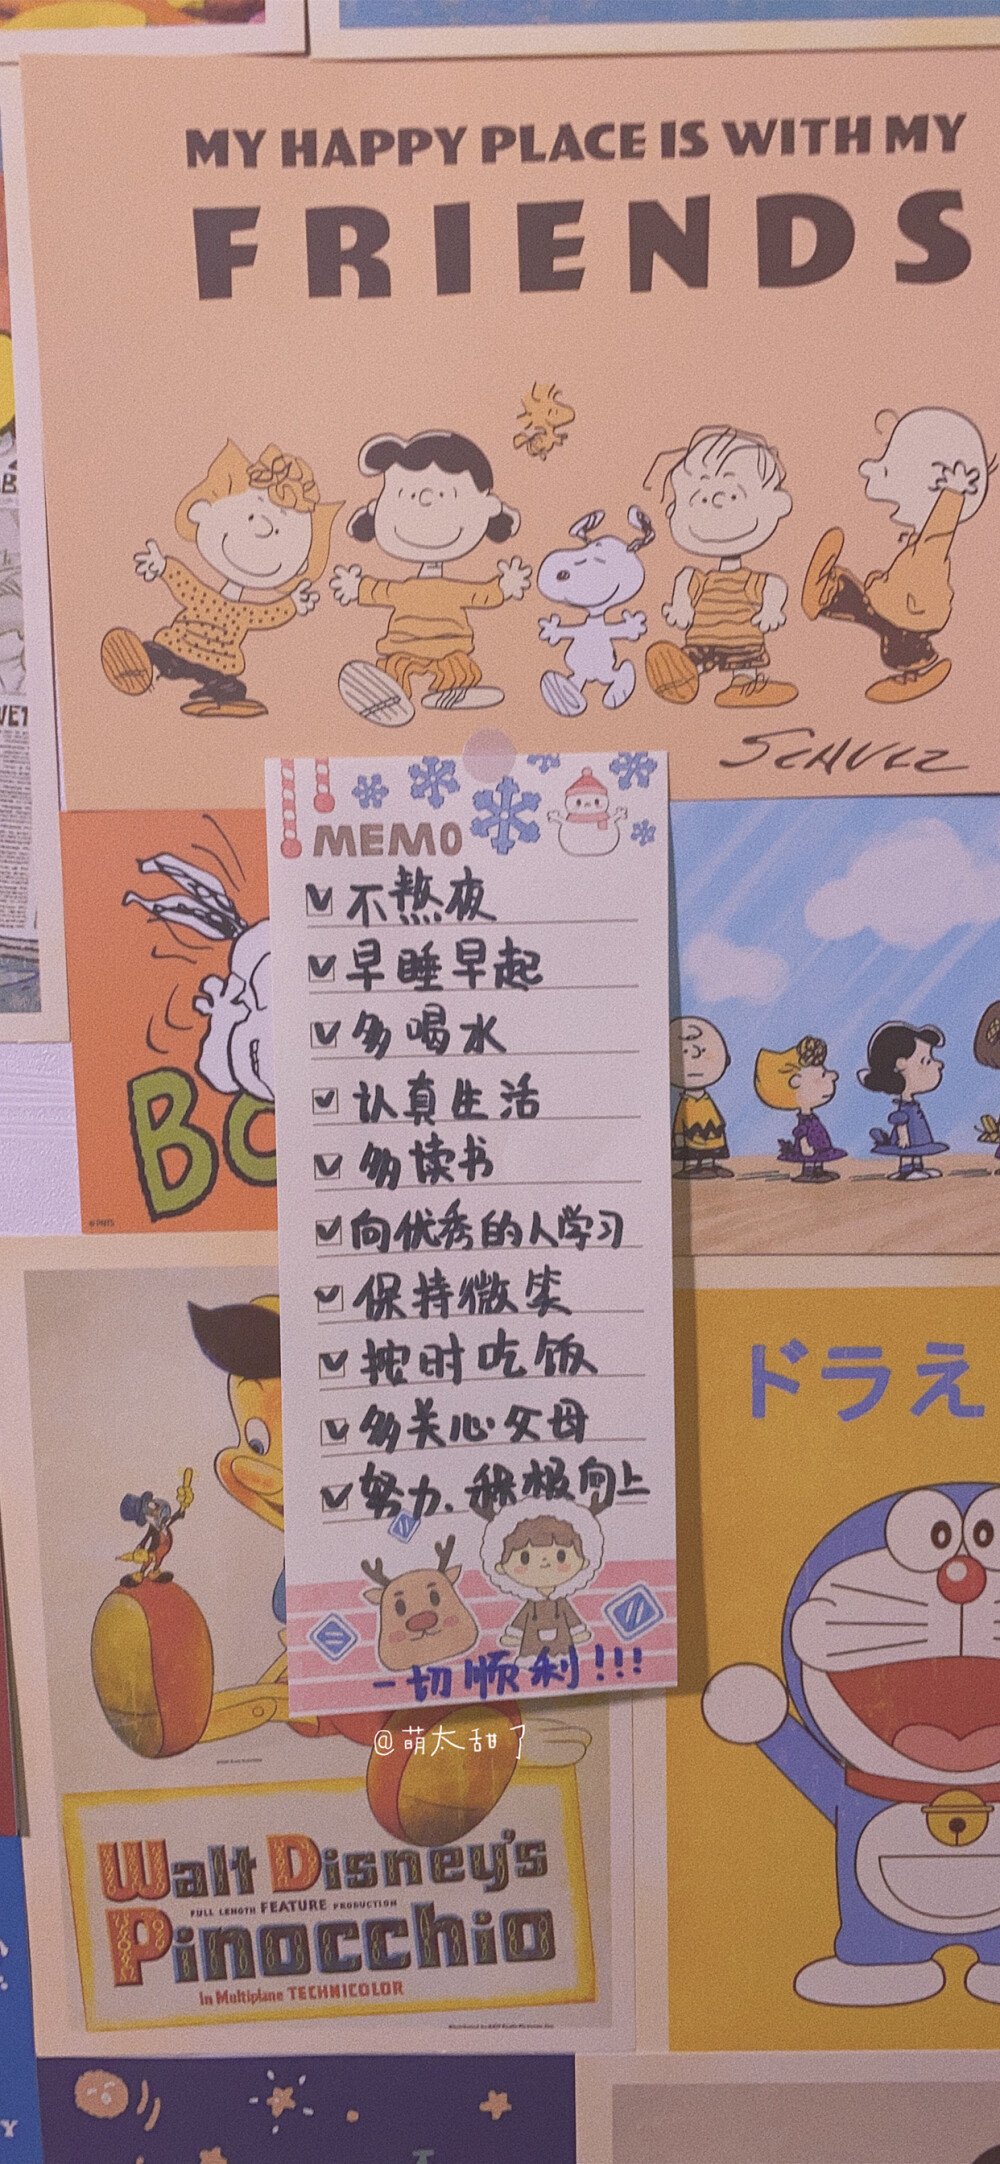 MY HAPPY PLACE IS WITH MY
FRIENDS
SCHULZ
MEMO
不熬夜
早睡早起
多喝水
认真生活
多读书
向优秀的人学习
保持微笑
按时吃饭
多关心父母
努力、积极向上
一切顺利!!!
@萌太甜了
BO
© PNTS
ドラえ
Walt Disney's
FULL LENGTH FEATURE PRODUCTION
Pinocchio
in Multiplane TECHNICOLOR
Y